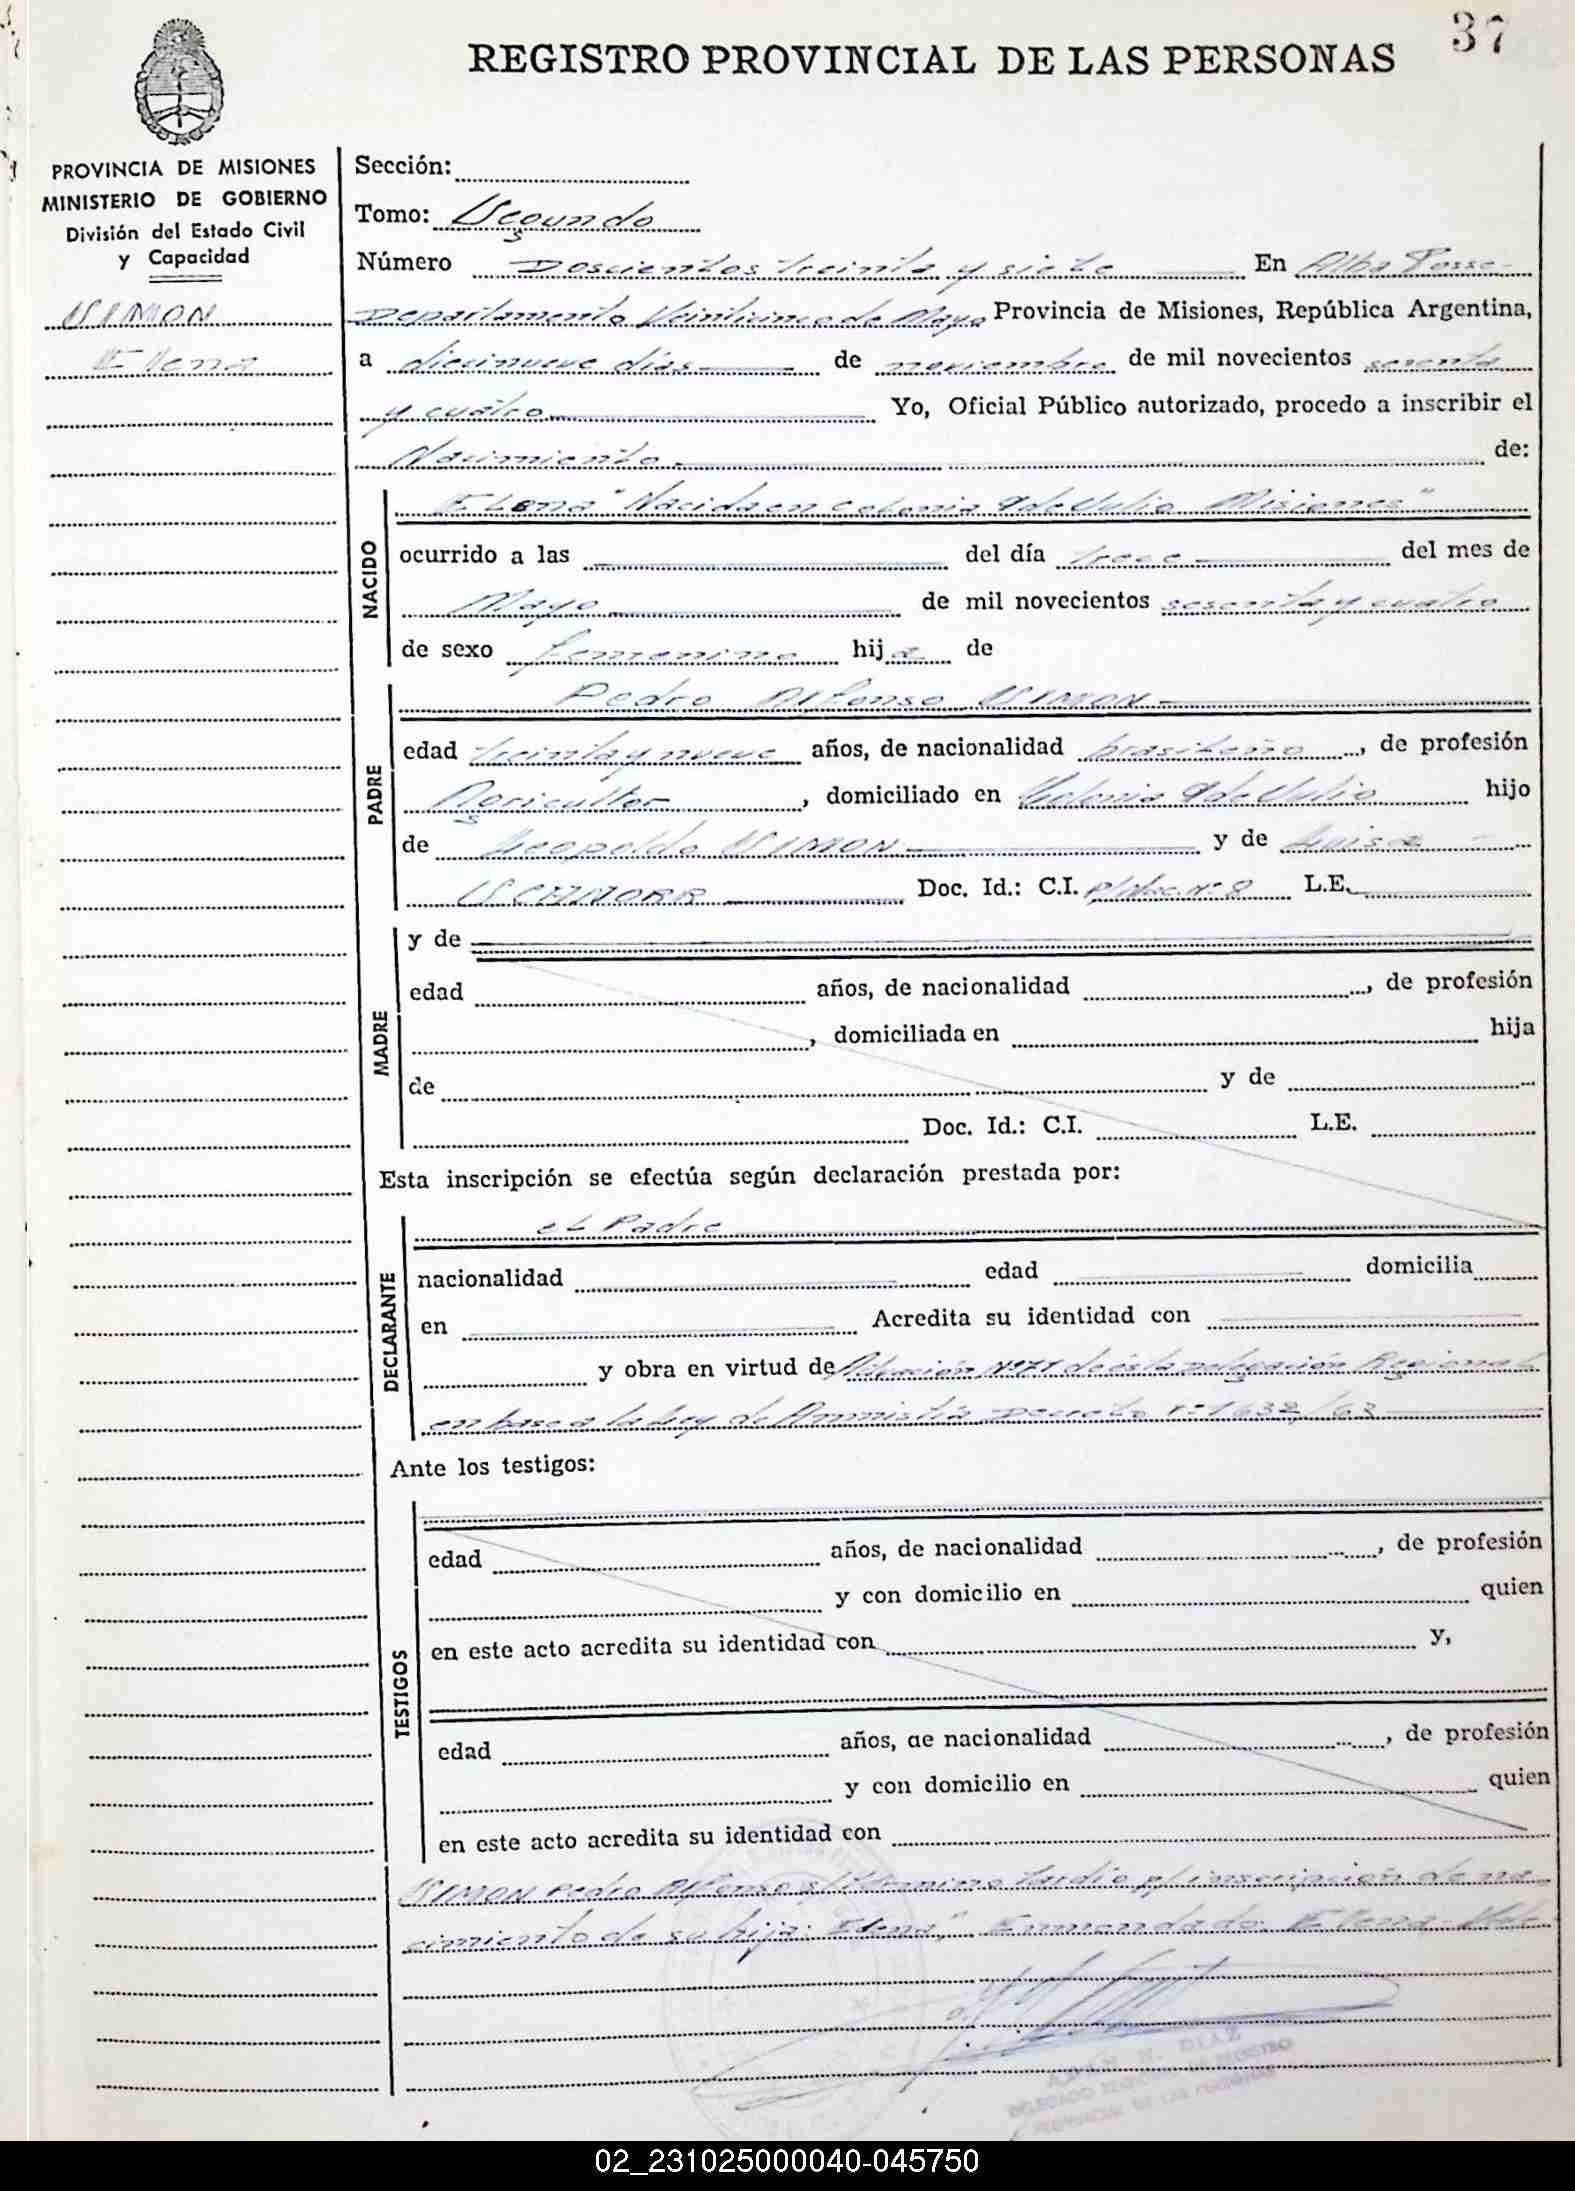 37
REGISTRO PROVINCIAL DE LAS PERSONAS
PROVINCIA DE MISIONES
MINISTERIO DE GOBIERNO
División del Estado Civil
y Capacidad
SIMON
Elena
Sección:
Tomo: Segundo
Número Doscientos treinta y siete En Alba Posse-
Departamento Veinticinco de Mayo Provincia de Misiones, República Argentina,
a diecinueve días de noviembre de mil novecientos sesenta
y cuatro Yo, Oficial Público autorizado, procedo a inscribir el
Nacimiento de:
NACIDO
Elena "Nacida en Colonia 9 de Julio Misiones"
ocurrido a las del día trece del mes de
Mayo de mil novecientos sesenta y cuatro
de sexo femenino hija de
PADRE
Pedro Alfonso SIMON
edad treinta y nueve años, de nacionalidad brasileño, de profesión
Agricultor, domiciliado en Colonia 9 de Julio hijo
de Leopoldo SIMON y de Luisa
SCHNORR Doc. Id.: C.I. Nº 8 L.E.
MADRE
y de
edad años, de nacionalidad , de profesión
, domiciliada en hija
de y de
Doc. Id.: C.I. L.E.
Esta inscripción se efectúa según declaración prestada por:
DECLARANTE
el Padre
nacionalidad edad domicilia
en Acredita su identidad con
y obra en virtud de Nº 71 de ésta Delegación Regional
en base a la Ley de Amnistía Decreto Nº 1632/63
Ante los testigos:
TESTIGOS
edad años, de nacionalidad , de profesión
y con domicilio en quien
en este acto acredita su identidad con y,
edad años, de nacionalidad , de profesión
y con domicilio en quien
en este acto acredita su identidad con
SIMON Pedro Alfonso s/término tardío p/inscripción de na-
cimiento de su hija: Elena", Enmendado: Elena-Vale
N. DIAZ
DELEGADO REGISTRO
PROVINCIAL DE LAS PERSONAS
02_231025000040-045750